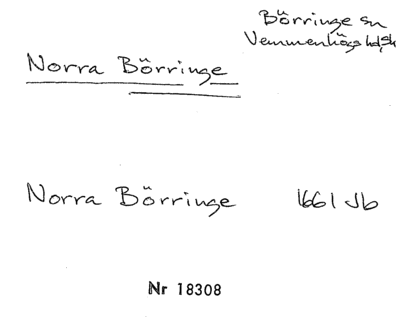 Börringe sn
Vemmenhögs hd, Sk
Norra Börringe
Norra Börringe 1661 Jb
Nr 18308